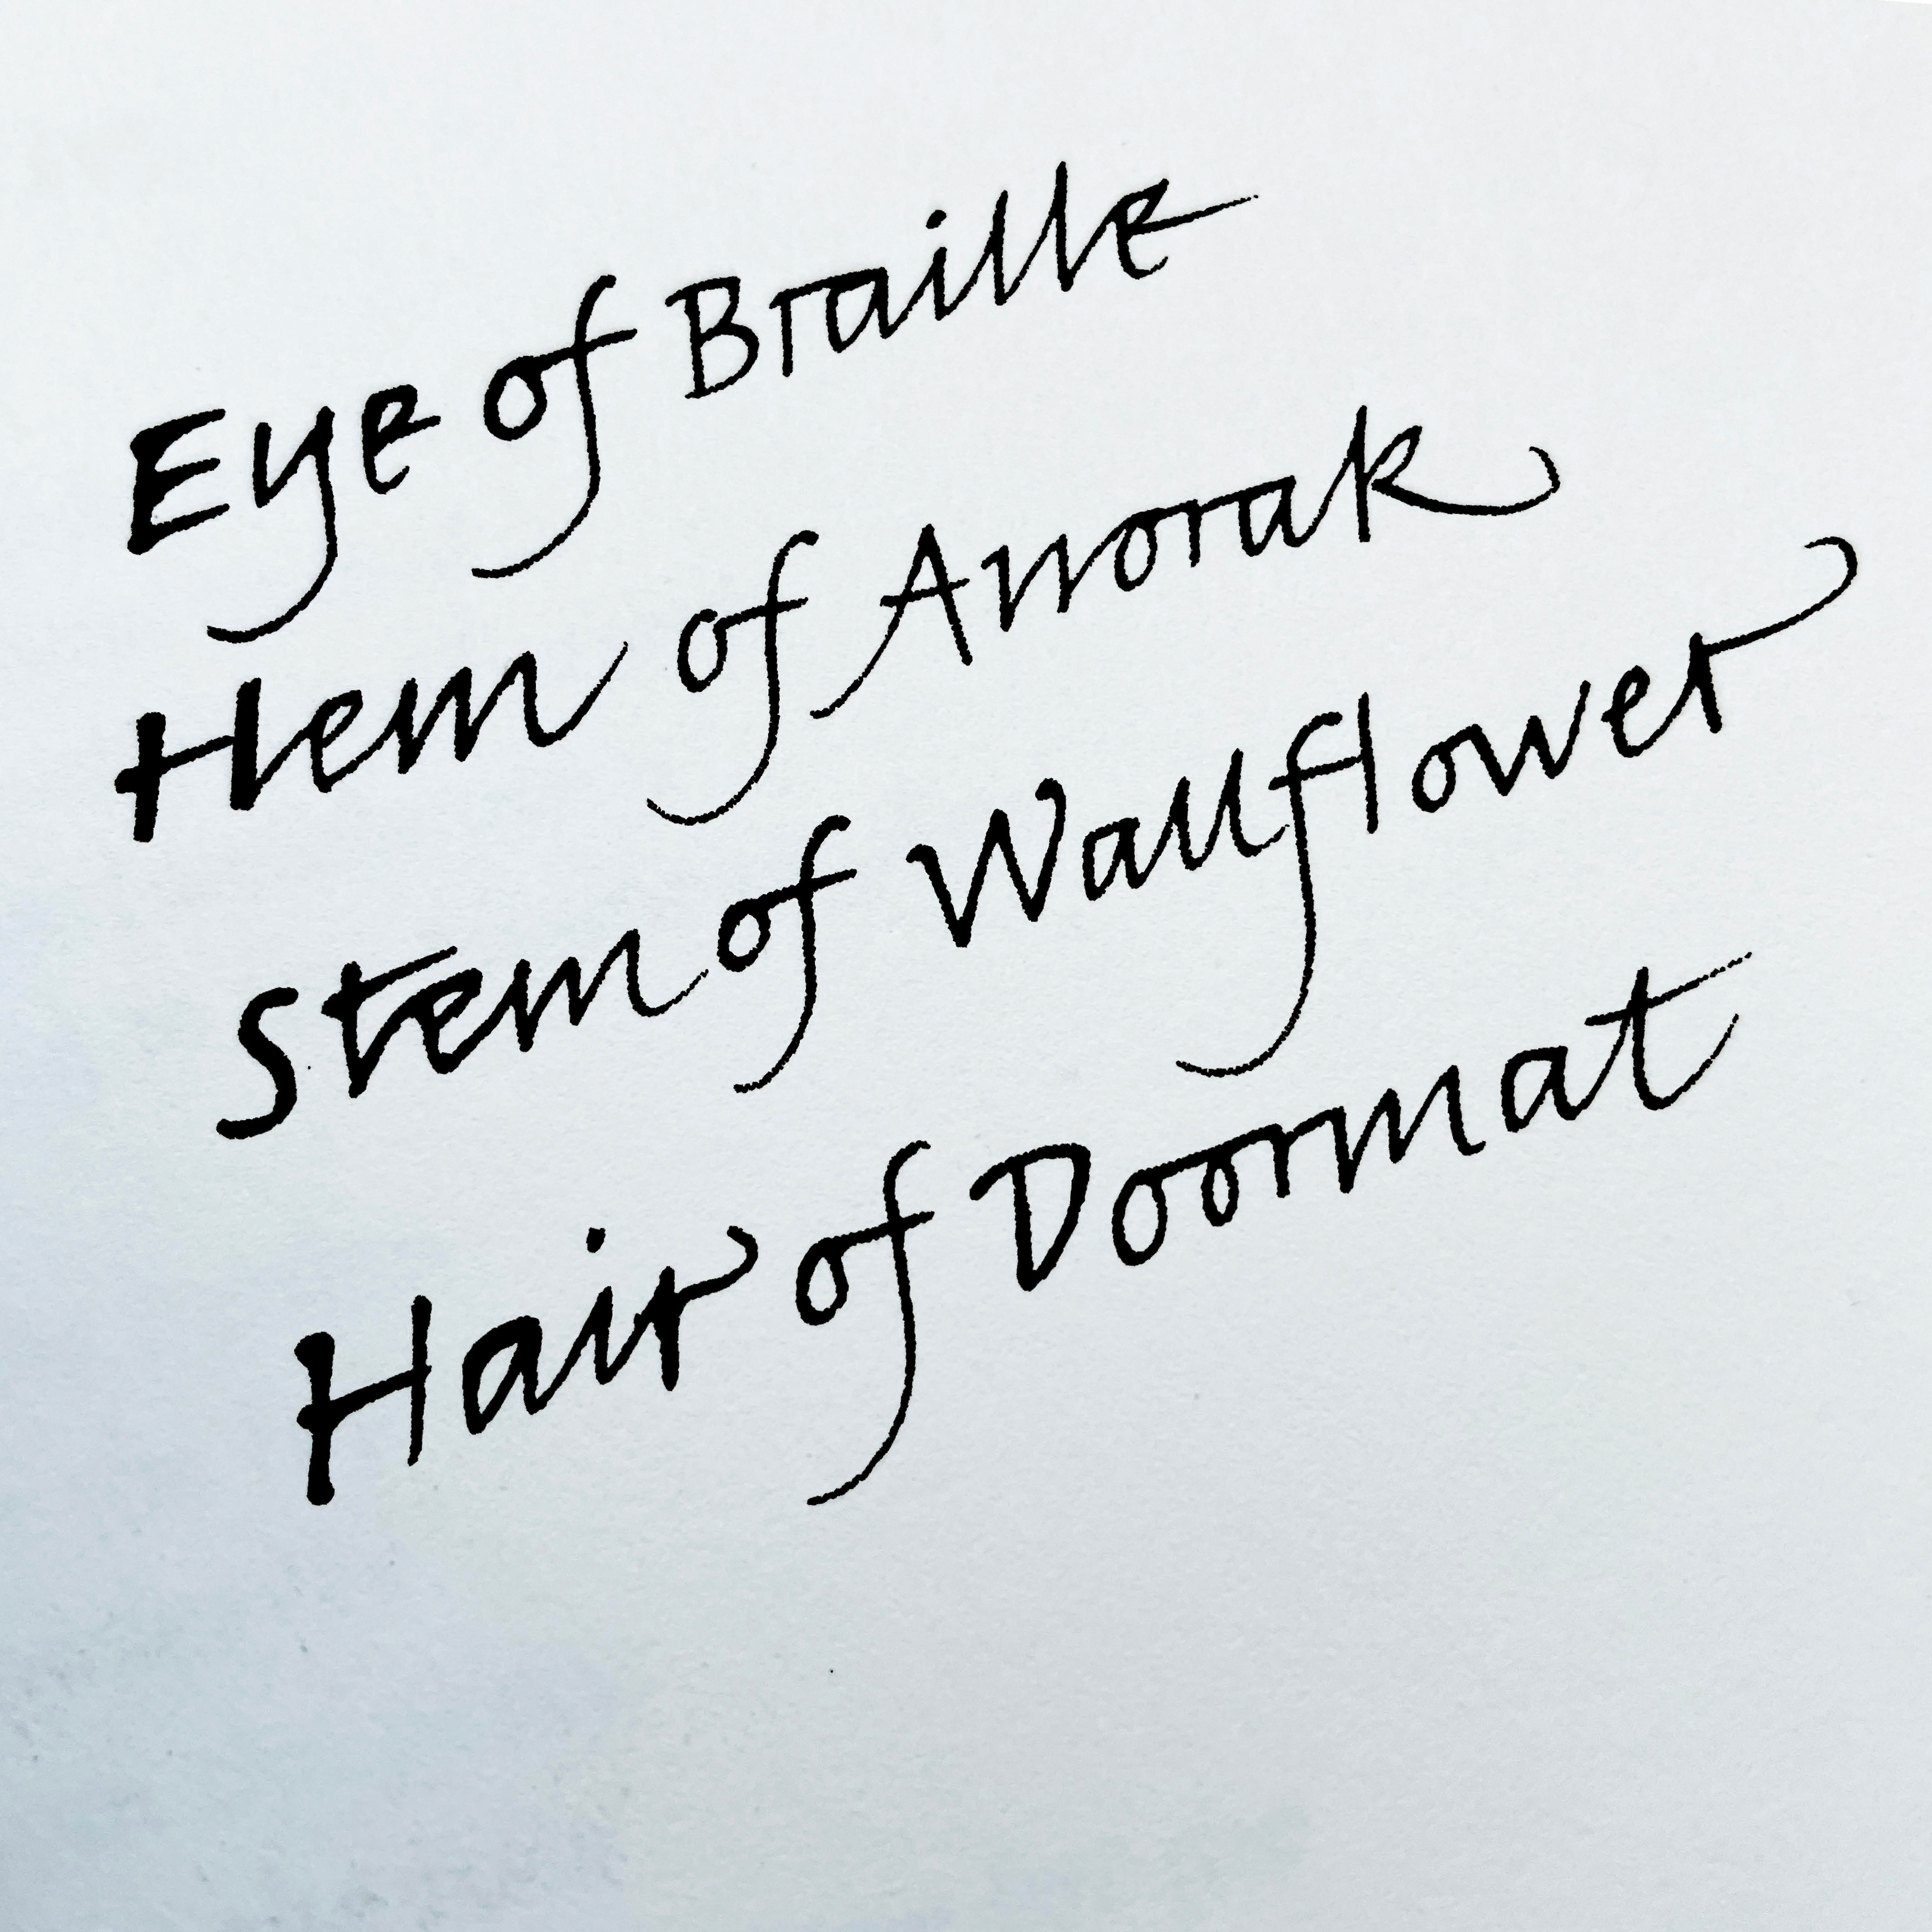 Eye of Braille
Hem of Anorak
Stem of Wallflower
Hair of Doormat